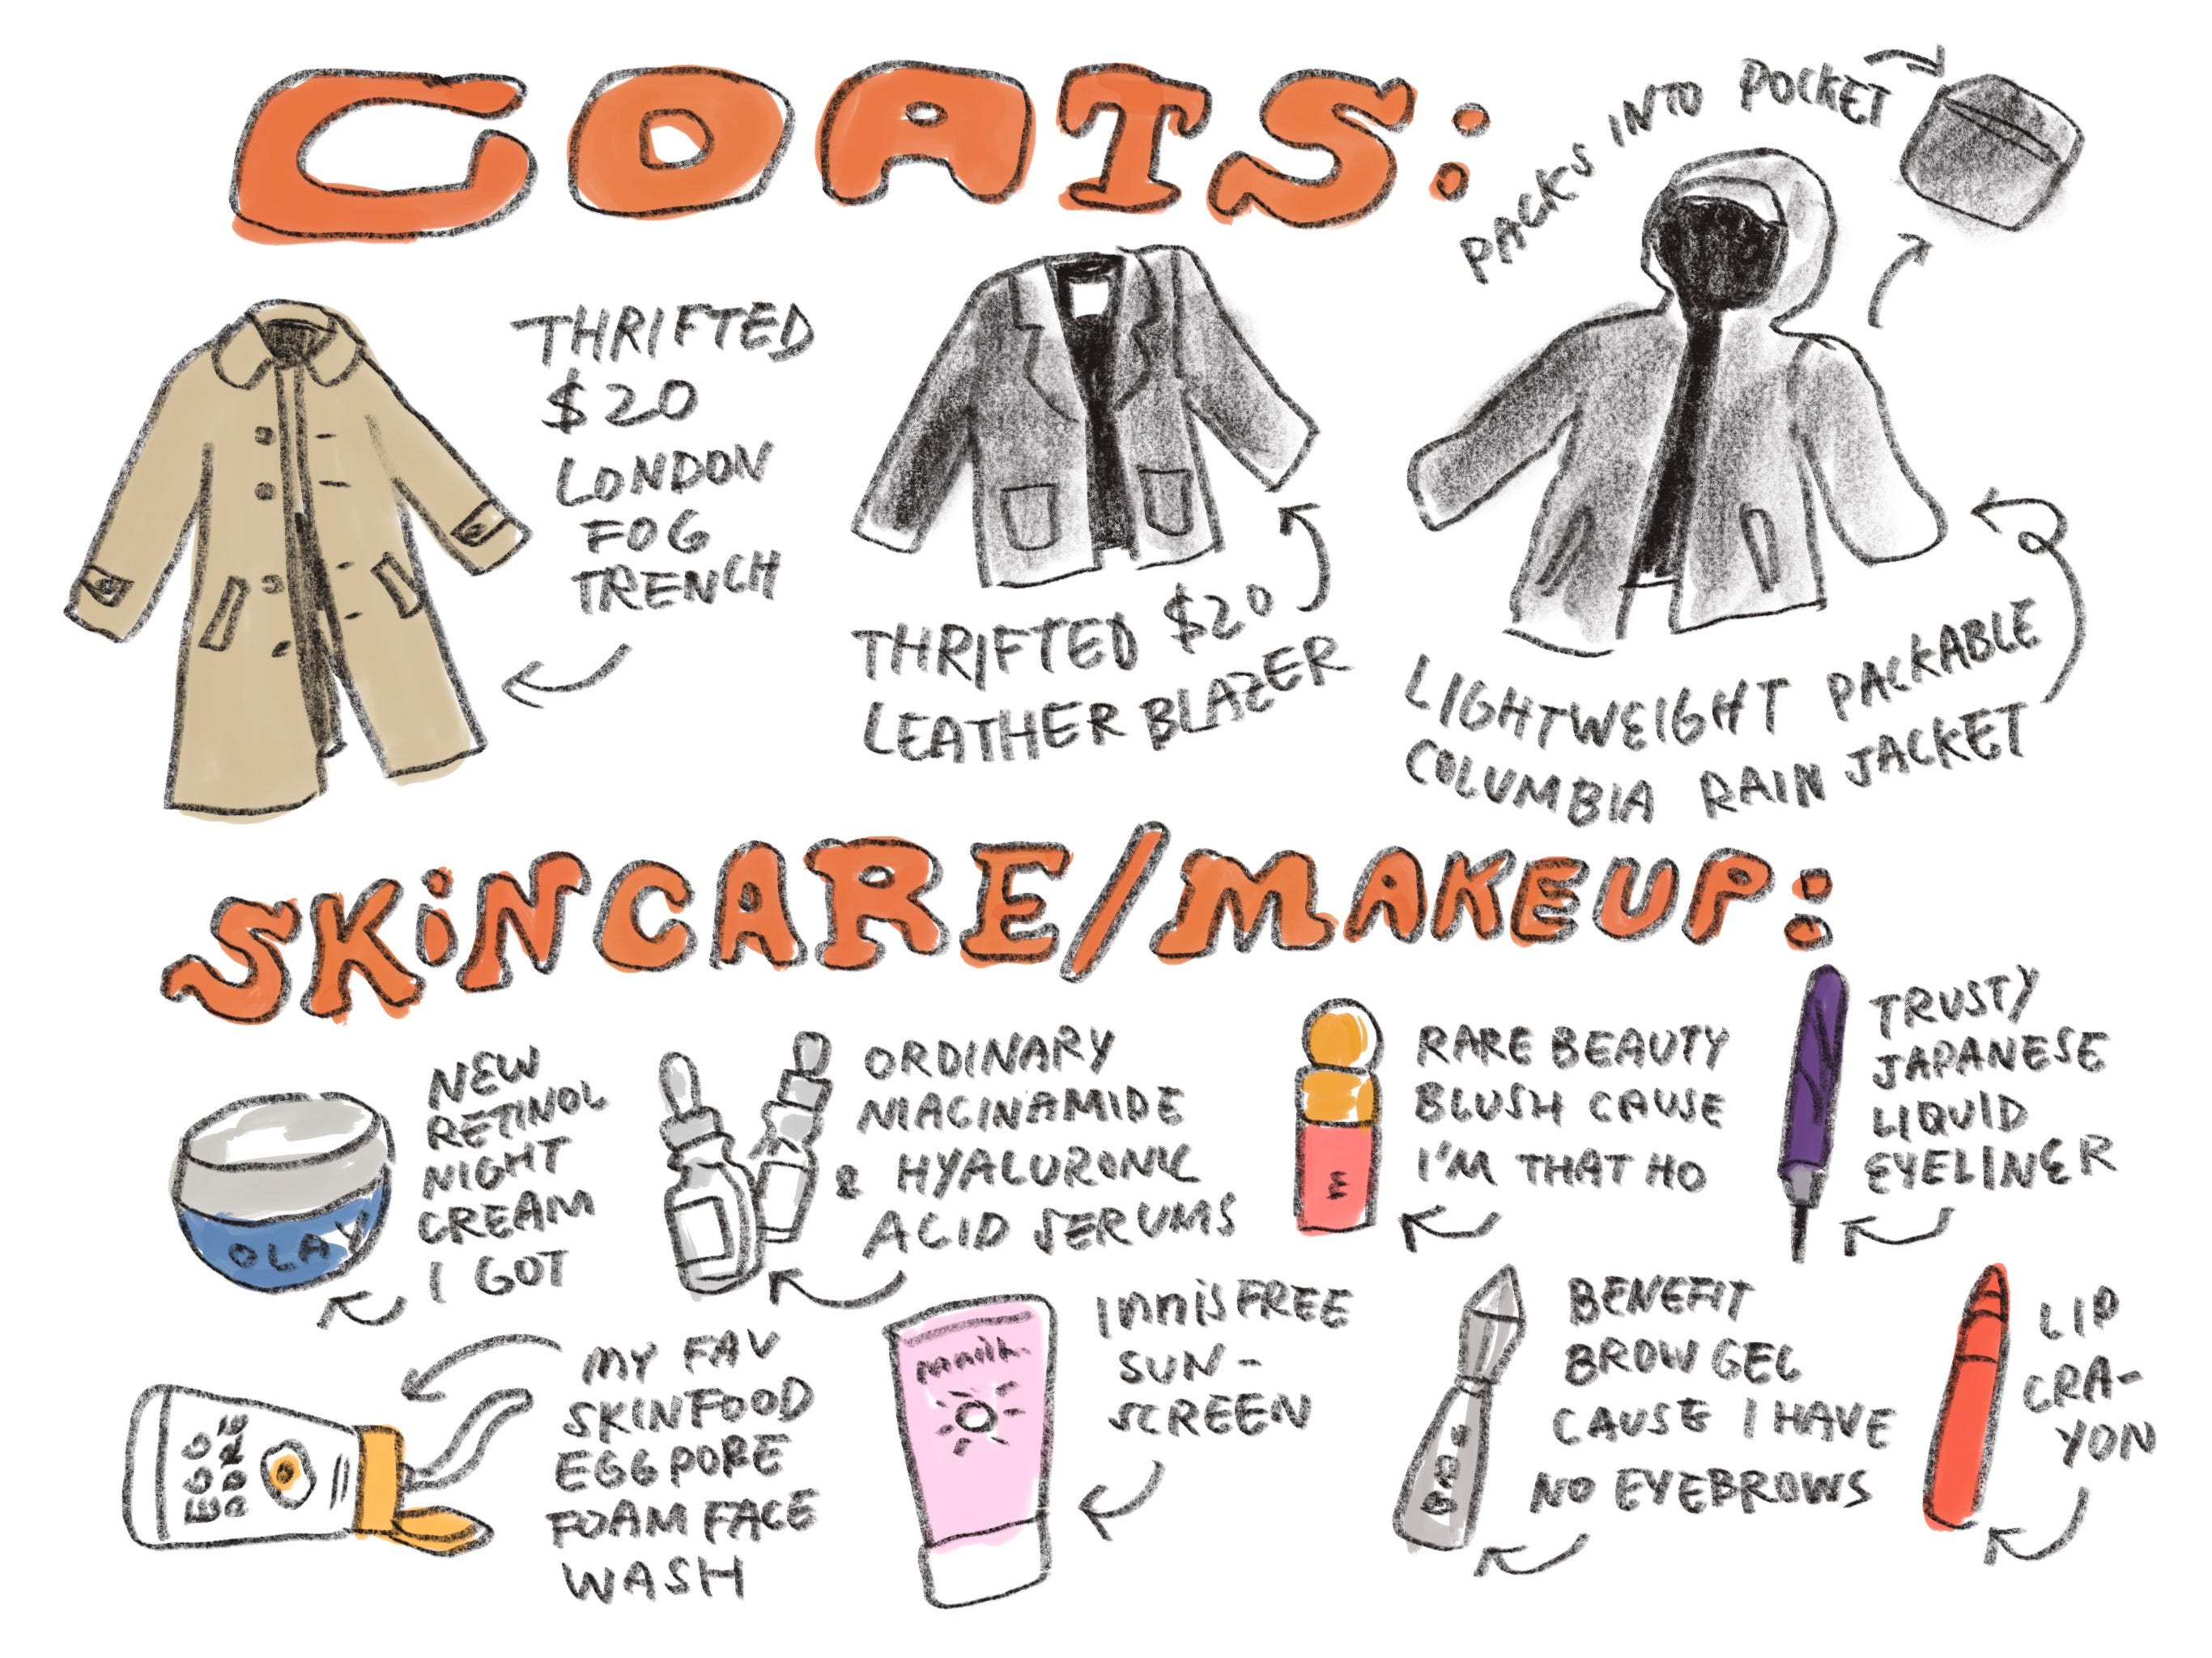 COATS:
PACKS INTO POCKET
THRIFTED
$20
LONDON
FOG
TRENCH
THRIFTED $20
LEATHER BLAZER
LIGHTWEIGHT PACKABLE
COLUMBIA RAIN JACKET
SKINCARE/MAKEUP:
NEW
RETINOL
NIGHT
CREAM
I GOT
OLAY
ORDINARY
NIACINAMIDE
& HYALURONIC
ACID SERUMS
RARE BEAUTY
BLUSH CAUSE
I'M THAT HO
TRUSTY
JAPANESE
LIQUID
EYELINER
MY FAV
SKINFOOD
EGG PORE
FOAM FACE
WASH
EGG
PORE
INNISFREE
SUN-
SCREEN
BENEFIT
BROW GEL
CAUSE I HAVE
NO EYEBROWS
LIP
CRA-
YON